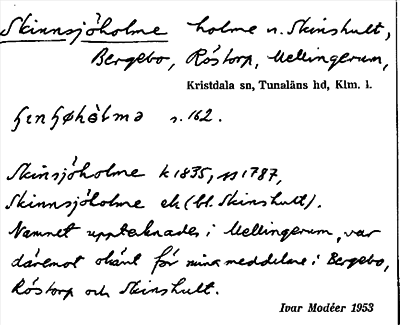 Skinnsjöholme holme n. Skinshult,
Bergebo, Röstorp, Mellingerum,
Kristdala sn, Tunaläns hd, Klm. l.
s. 162.
Skinsjöholme k 1835, 1787,
Skinnsjöholme ek (bl. Skinshult).
Namnet upptecknades i Mellingerum, var
däremot okänt för mina meddelare i Bergebo,
Röstorp och Skinshult.
Ivar Modéer 1953